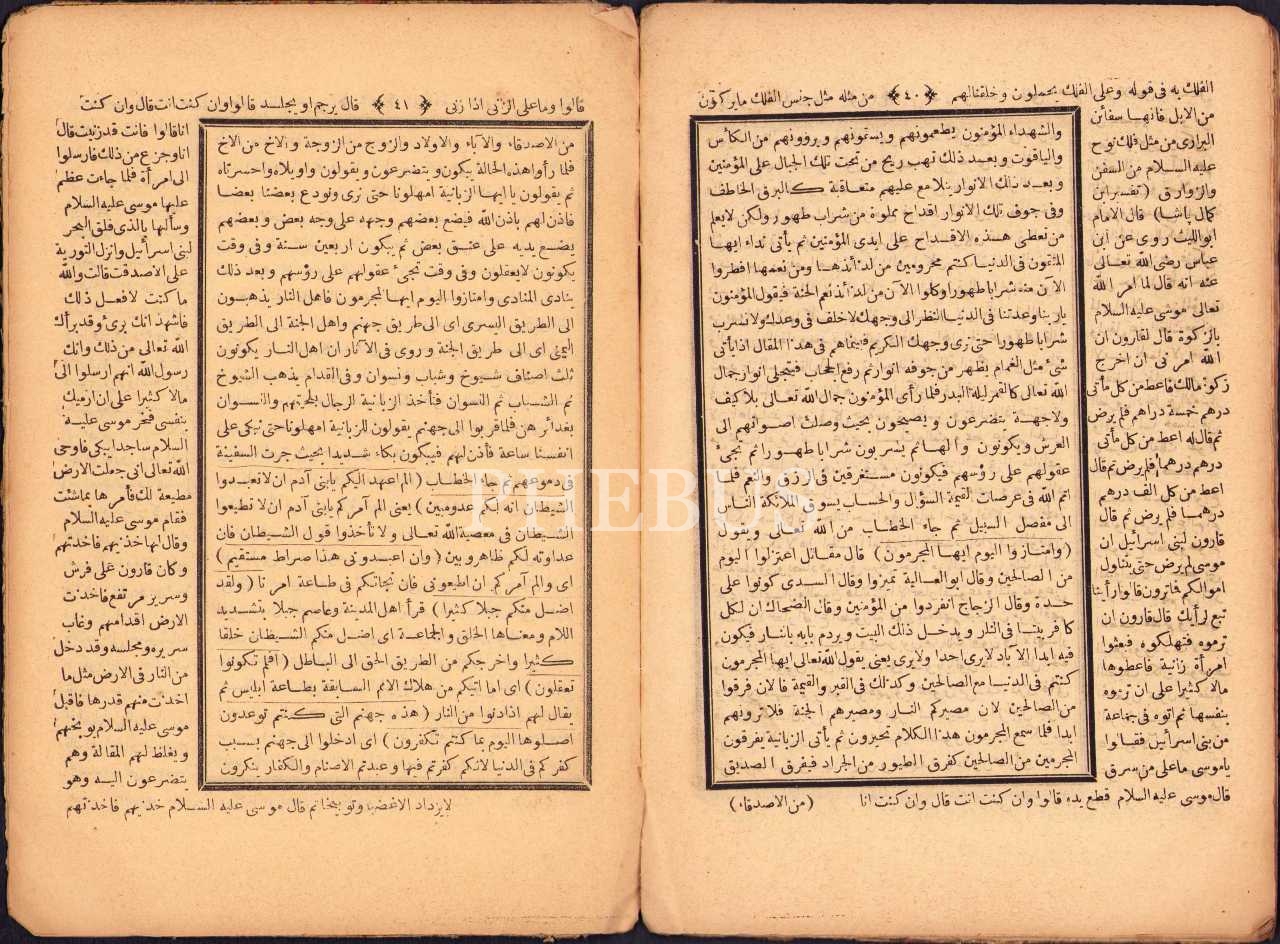 الفلك به فى قوله وعلى الفلك يحملون وخلقنالهم ﴿٤٠﴾ من مثله مثل جنس الفلك مايركبون
من الابل فانهـا سفائن
البرارى من مثل فلك نوح
عليه السـلام من السفن
والزوارق (تفسير ابن
كمال باشا) قال الامام
ابو الليث روى عن ابن
عباس رضى الله تعـالى
عنه انه قال لما امر الله
تعالى موسى عليه السلام
بالزكوة قال لقارون ان
الله امرنى ان اخرج
زكوة مالك فاعط من كل مأتى
درهم خمسة دراهم فلم يرض
ثم قال له اعط من كل مأتى
درهم درهما فلم يرض ثم قال
اعط من كل الف درهم
درهمـا فلم يرض ثم قال
قارون لبنى اسرائيل ان
موسى لم يرض حتى يتناول
اموالكم فاترون قالوا رأينا
تبع لرأيك قال قارون ان
ترموه فتهلكوه فبعثوا
امرأة زانية فاعطوها
مالا كثيرا على ان ترموه
بنفسها ثم اتوه فى جماعة
من بنى اسرأئيل فقـالوا
ياموسى ما على من سرق
قال موسى عليه السلام قطع يده قالوا وان كنت انت قال وان كنت انا
والشهداء المؤمنون يطعمونهم ويسقونهم ويروونهم من الكأس
والياقوت وبعـد ذلك تهب ريح من تحت تلك الجبال على المؤمنين
وبعـد ذلك الانوار بتلامع عليهم متعاقبة كالبرق الخاطف
وفى جوف تلك الانوار اقداح مملوة من شراب طهور ولكن لايعلم
من تعطى هـذه الاقـداح على ايدى المؤمنين ثم يأتى نداء ايهـا
المتقون فى الدنيـا كنتم محرومين من لذائذهـا ومن نعمها افطروا
الآن منه شرابا طهورا وكلوا الآن من لذائذ نعم الجنة فيقول المؤمنون
ياربنا وعدتنا فى الدنيـا النظر الى وجهك لاخلف فى وعدك ولانشرب
شرابا طهورا حتى نرى وجهك الكريم فبينماهم فى هـذا المقال اذا يأتى
شئ مثل الغمام يظهر من جوفه انوار ثم رفع الحجاب فيتجلى انوار جمال
الله تعالى كالقمر ليلة البدر فلما رأى المؤمنون جمال الله تعـالى بلاكيف
ولاجهـة يتضرعون ويصيحون بحيث وصلت اصواتهم الى
العرش ويكونون والهـا ثم يشربون شرابا طهورا ثم تجئ
عقولهم على رؤسهم فيكونون مستغرقين فى الرزق والنعم فلمـا
اتم الله فى عرصات القيمة السؤال والحساب يسوق الملائكة الناس
الى مفصل السبيل ثم جاء الخطاب من الله تعـالى ويقول
(وامتـازوا اليوم ايهـا المجرمون) قال مقـاتل اعتزلوا اليوم
من الصالحين وقال ابو العـالية تميزوا وقال السـدى كونوا على
حدة وقال الزجاج انفردوا من المؤمنين وقال الضحاك ان لكل
كافر بيتـا فى النار ويدخل ذلك البيت ويردم بابه بالنـار فيكون
فيه ابدا الآباد لايرى احدا ولايرى يعنى يقول الله تعالى ايهـا المجرمون
كنتم فى الدنيـا مع الصالحين وكذلك فى القبر والقيمة فالآن فرقوا
من الصالحين لان مصيركم النار ومصيرهم الجنة فلاترونهم
ابدا فلما سمع المجرمون هـذا الكلام تحيرون ثم يأتى الزبانية يفرقون
المجرمين من الصالحين كفرق الطيور من الجراد فيفرق الصديق
(من الاصدقاء)
قالوا وما على الزانى اذا زنى ﴿٤١﴾ قال يرجم او يجلسد قالوا وان كنت انت قال وان كنت
من الاصدقاء والآباء والاولاد والزوج من الزوجة والاخ من الاخ
فلما رأوا هذه الحالة يبكون ويتضرعون ويقولون واويلاه واحسرتاه
ثم يقولون يا ايهـا الزبانية امهلونا حتى نرى ونودع بعضنا بعضا
فاذن لهم باذن الله فيضع بعضهم وجهه على وجه بعض وبعضهم
يضع يديه على عنـق بعض ثم يبكون اربعين سـنة وفى وقت
يكونون لايعقلون وفى وقت تجئ عقولهم على رؤسهم وبعد ذلك
ينادى المنادى وامتازوا اليوم ايهـا المجرمون فاهل النار يذهبـون
الى الطريق اليسرى اى الى طريق جهنم واهل الجنة الى الطريق
اليمنى اى الى طريق الجنة وروى فى الآثار ان اهل النـار يكونون
ثلث اصناف شـيوخ وشباب ونسوان وفى القدام يذهب الشيوخ
ثم الشبـاب ثم النسوان فتأخذ الزبانية الرجال بلحيتهم والنسوان
بغدائرهن فلما قربوا الى جهنم يقولون للزبانية امهلونا حتى نبكى على
انفسنا ساعة فأذن لهم فيبكون بكاء شـديدا بحيث جرت السفينة
فى دموعهم ثم جاء الخطاب (الم اعهد اليكم يابنى آدم ان لاتعبـدوا
الشيطان انه لكم عدو مبين) يعنى الم آمركم يابنى آدم ان لاتطيعوا
الشـيطان فى معصية الله تعـالى ولا تأخذوا قول الشـيطان فان
عداوته لكم ظاهر وبين (وان اعبـدونى هذا صراط مستقيم)
اى والم آمركم ان اطيعونى فان نجاتكم فى طـاعة امرنا (ولقد
اضل منكم جبلا كثيرا) قرأ اهل المدينة وعاصم جبلا بتشديد
اللام ومعنـاها الخلق والجماعـة اى اضل منكم الشـيطان خلقا
كثيرا واخرجكم من الطريق الحق الى البـاطل (افلم تكونوا
تعقلون) اى اما اتيكم من هلاك الامم السـابقة بطـاعة ابليس ثم
يقال لهم اذا دنوا من النار (هذه جهنم التى كنتم توعدون
اصلوها اليوم بما كنتم تكفرون) اى ادخلوا الى جهنم بسبب
كفركم فى الدنيا لانكم كفرتم فيها وعبدتم الاصنام والكفار ينكرون
انا قالوا فانت قد زنيت قال
انا وجزع من ذلك فارسلوا
الى امرأة فلما جاءت عظم
عليها موسى عليه السلام
وسألها بالذى فلق البحر
لبنى اسرآئيل وانزل التورية
على الا صدقت قالت والله
ما كنت لافعل ذلك
فاشهد انك برئ وقد برأك
الله تعالى من ذلك وانك
رسول الله انهم ارسلوا الى
مالا كثيرا على ان ارميك
بنفسى فخر موسى عليـه
السلام ساجدا يبكى فاوحى
الله تعالى انى جعلت الارض
مطيعة لك فأمرها بما شئت
فقام موسى عليه السلام
وقال ايها خذيهم فاخذتهم
وكان قارون على فرش
وسرير مرتفع فاخذت
الارض اقدامهم وغاب
سريره ومجلسه وقد دخل
من النار فى الارض مثل ما
اخذت منهم قدرها فاقبل
موسى عليه السلام يوبخهم
ويغلظ لهم المقالة وهم
يتضرعون اليـه وهو
لايزداد الاغضبا وتوبيخا ثم قال موسى عليه السـلام خذيهم فاخذتهم
PHEBUS